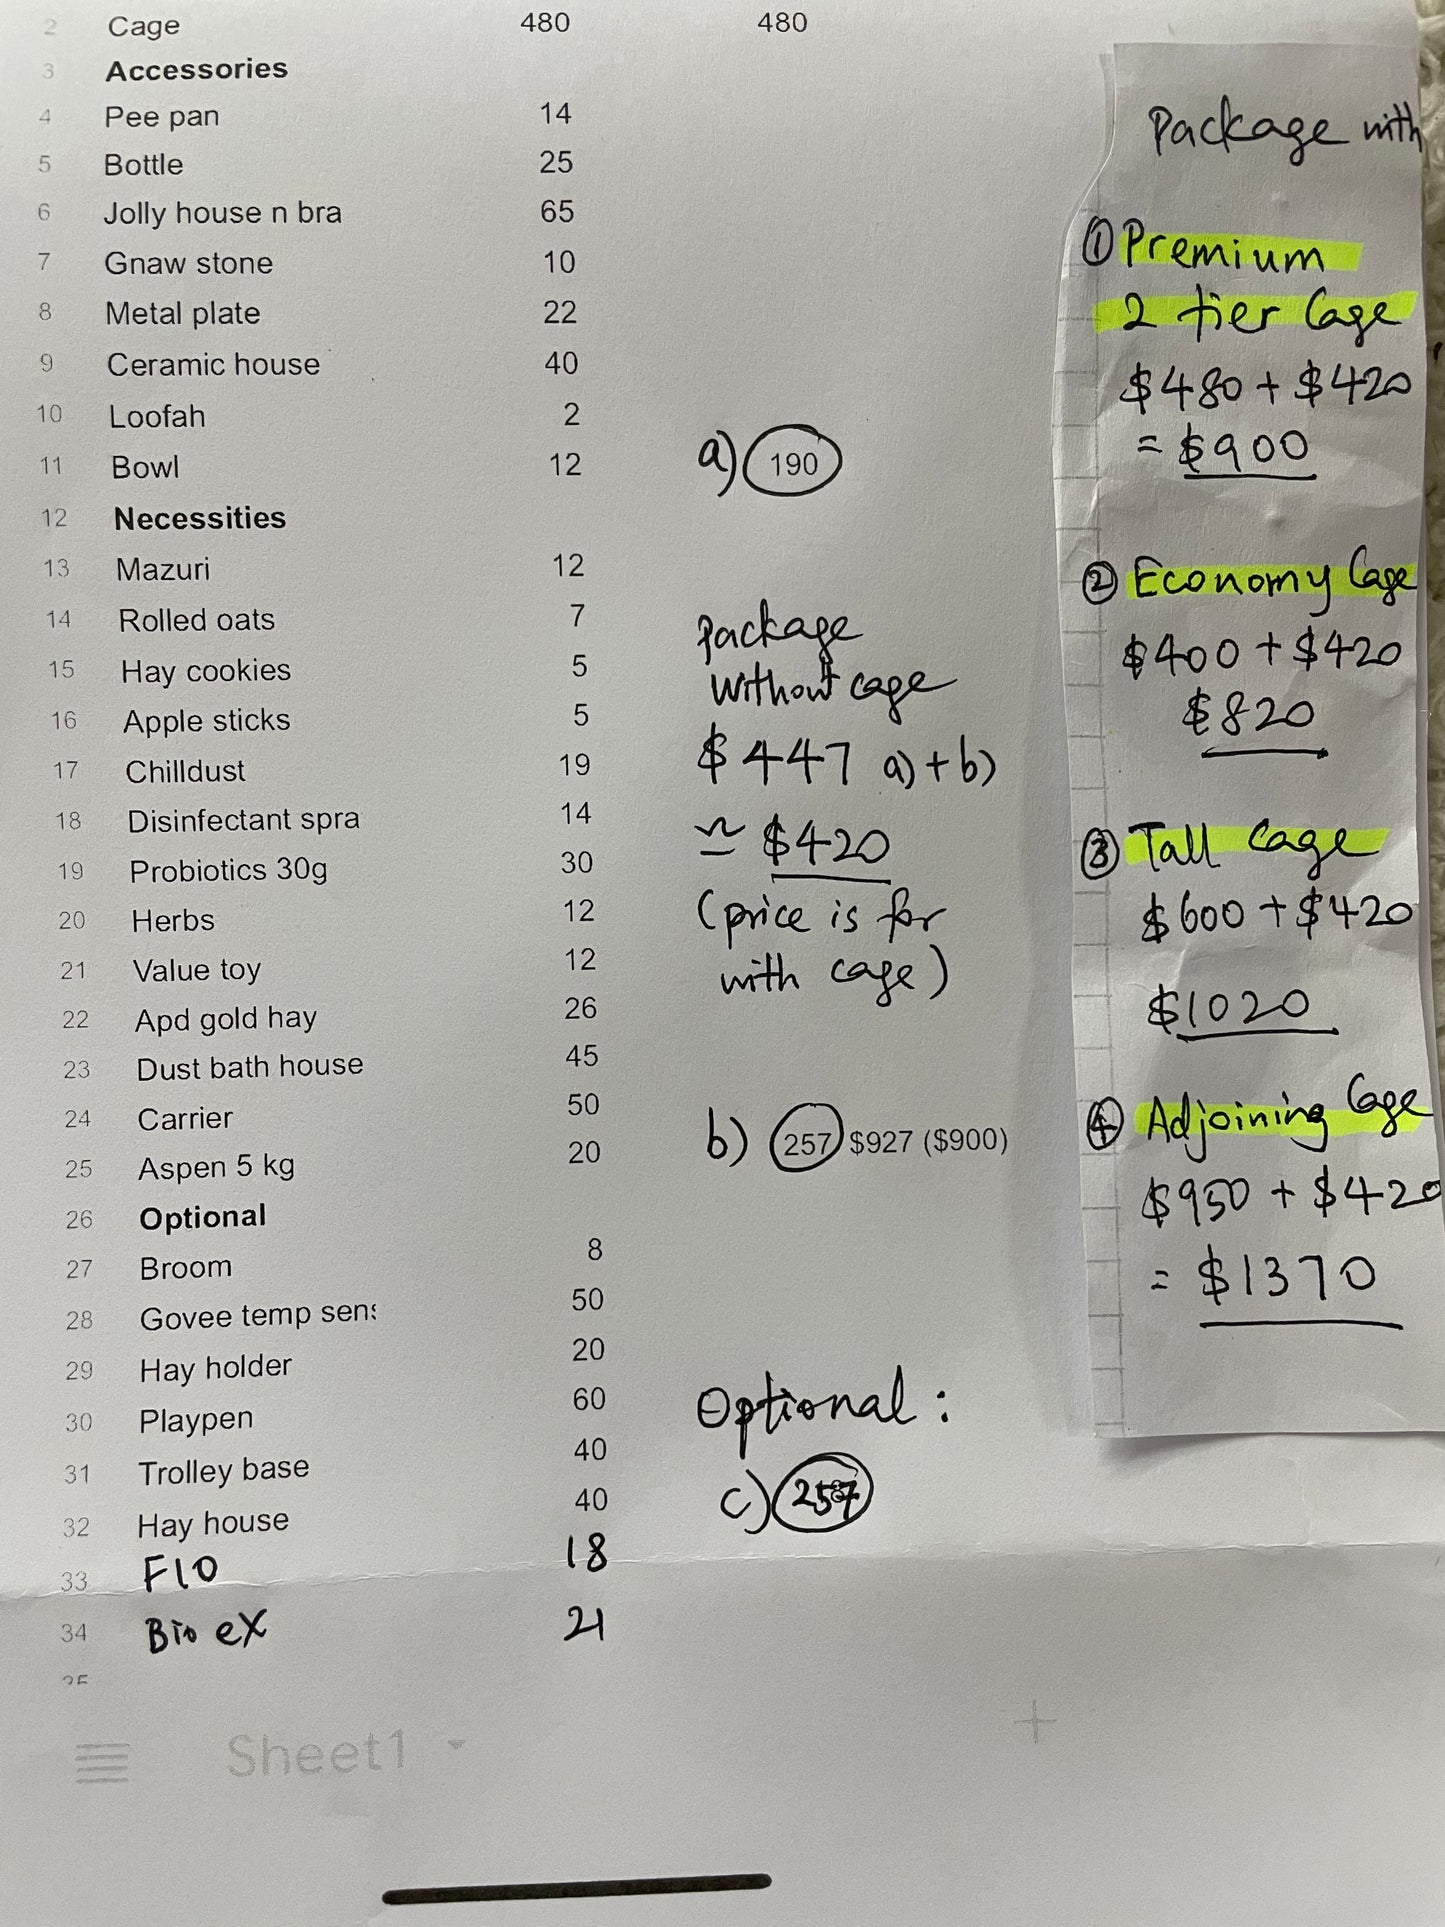 2 Cage 480 480
3 Accessories
4 Pee pan 14
5 Bottle 25
6 Jolly house n bra 65
7 Gnaw stone 10
8 Metal plate 22
9 Ceramic house 40
10 Loofah 2
11 Bowl 12 a) 190
12 Necessities
13 Mazuri 12
14 Rolled oats 7
15 Hay cookies 5
16 Apple sticks 5
17 Chilldust 19
18 Disinfectant spra 14
19 Probiotics 30g 30
20 Herbs 12
21 Value toy 12
22 Apd gold hay 26
23 Dust bath house 45
24 Carrier 50
25 Aspen 5 kg 20
26 Optional
27 Broom 8
28 Govee temp sens 50
29 Hay holder 20
30 Playpen 60
31 Trolley base 40
32 Hay house 40
33 F10 18
34 Bio eX 21
35
Sheet1
Package
Without cage
$447 a) + b)
≃ $420
(price is for
with cage)
b) 257 $927 ($900)
Optional :
c) 257
Package with
① Premium
2 tier Cage
$480 + $420
= $900
② Economy Cage
$400 + $420
$820
③ Tall Cage
$600 + $420
$1020
④ Adjoining Cage
$950 + $420
= $1370